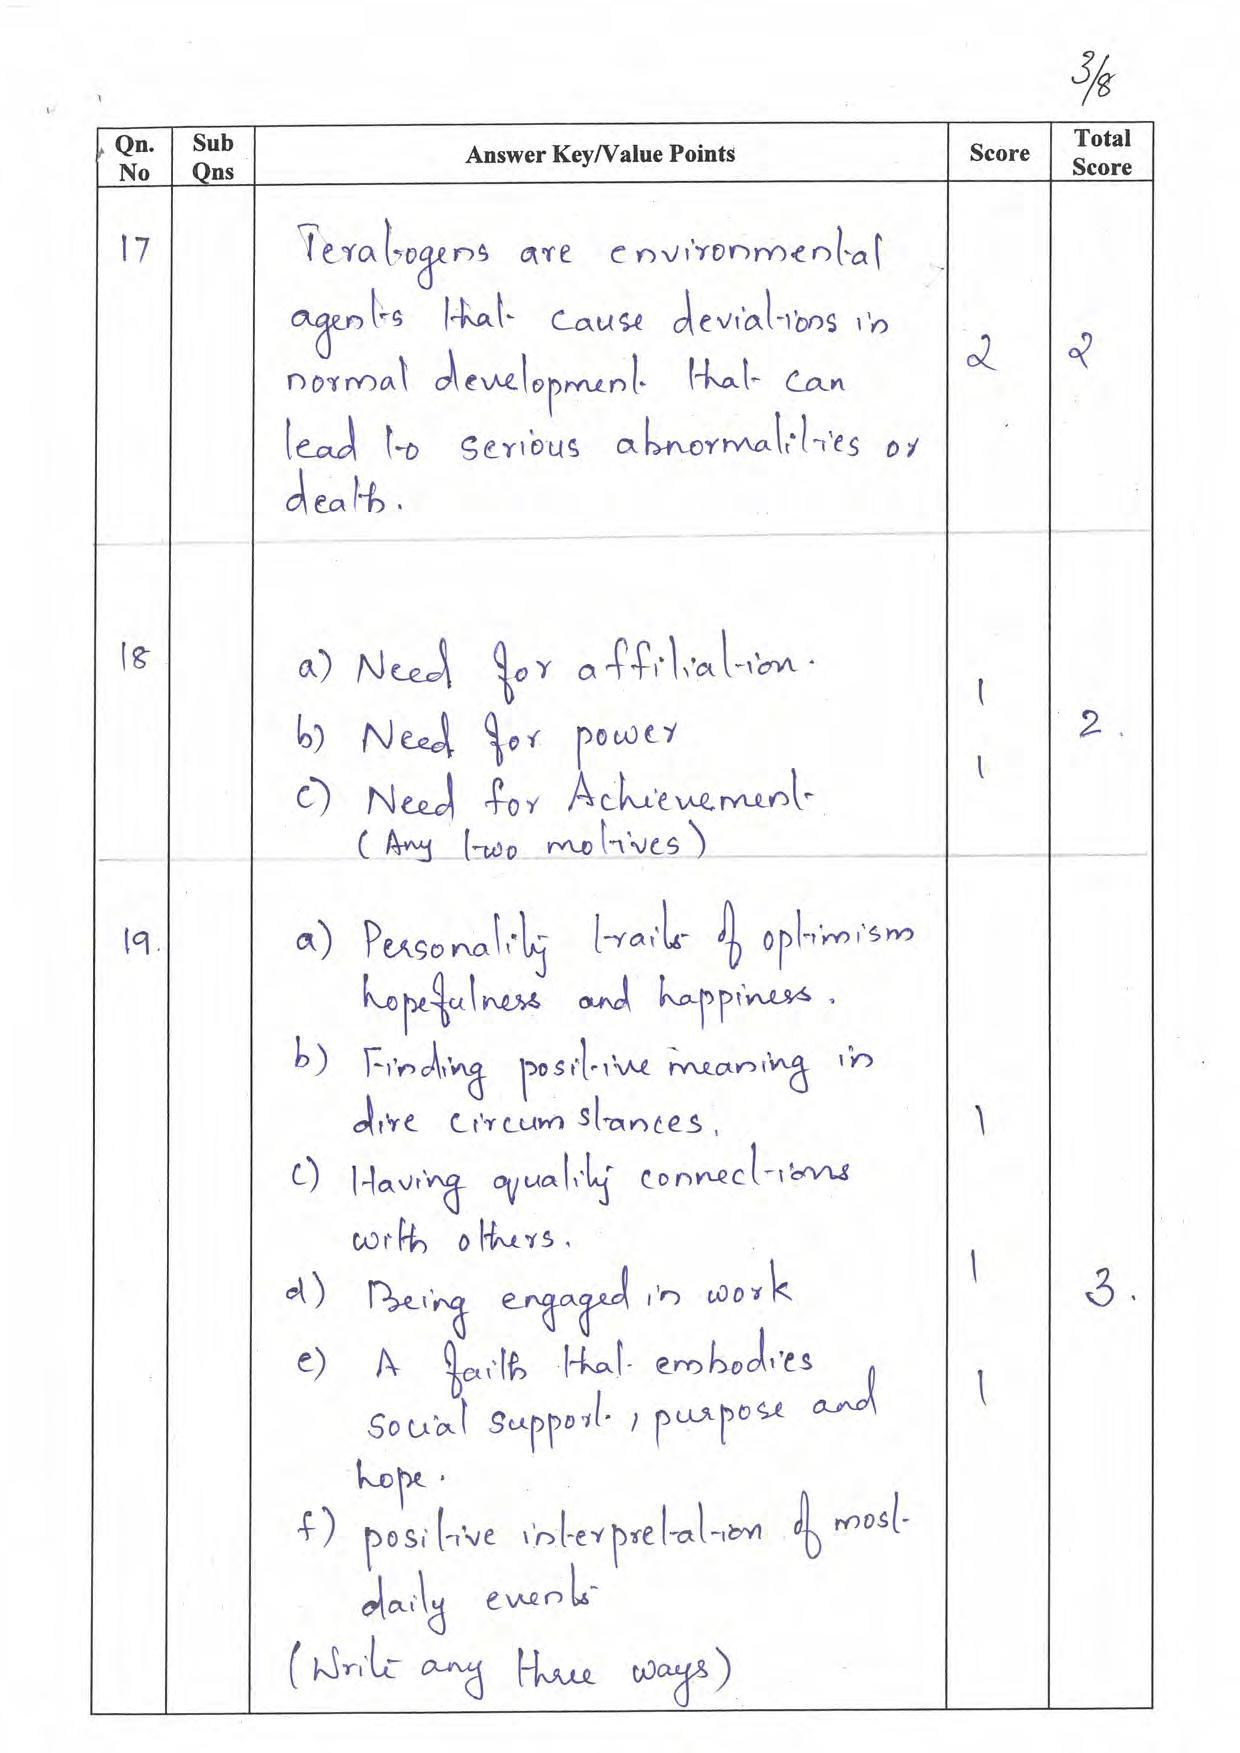 3/8
Qn. No Sub Qns Answer Key/Value Points Score Total Score
17
Teratogens are environmental
agents that cause deviations in
normal development that can
lead to serious abnormalities or
death.
2 2
18
a) Need for affiliation.
b) Need for power
c) Need for Achievement
(Any two motives)
1
1
2.
19.
a) Personality traits of optimism
hopefulness and happiness.
b) Finding positive meaning in
dire circumstances.
c) Having quality connections
with others.
d) Being engaged in work
e) A faith that embodies
social support, purpose and
hope.
f) positive interpretation of most
daily events
(Write any three ways)
1
1
1
3.